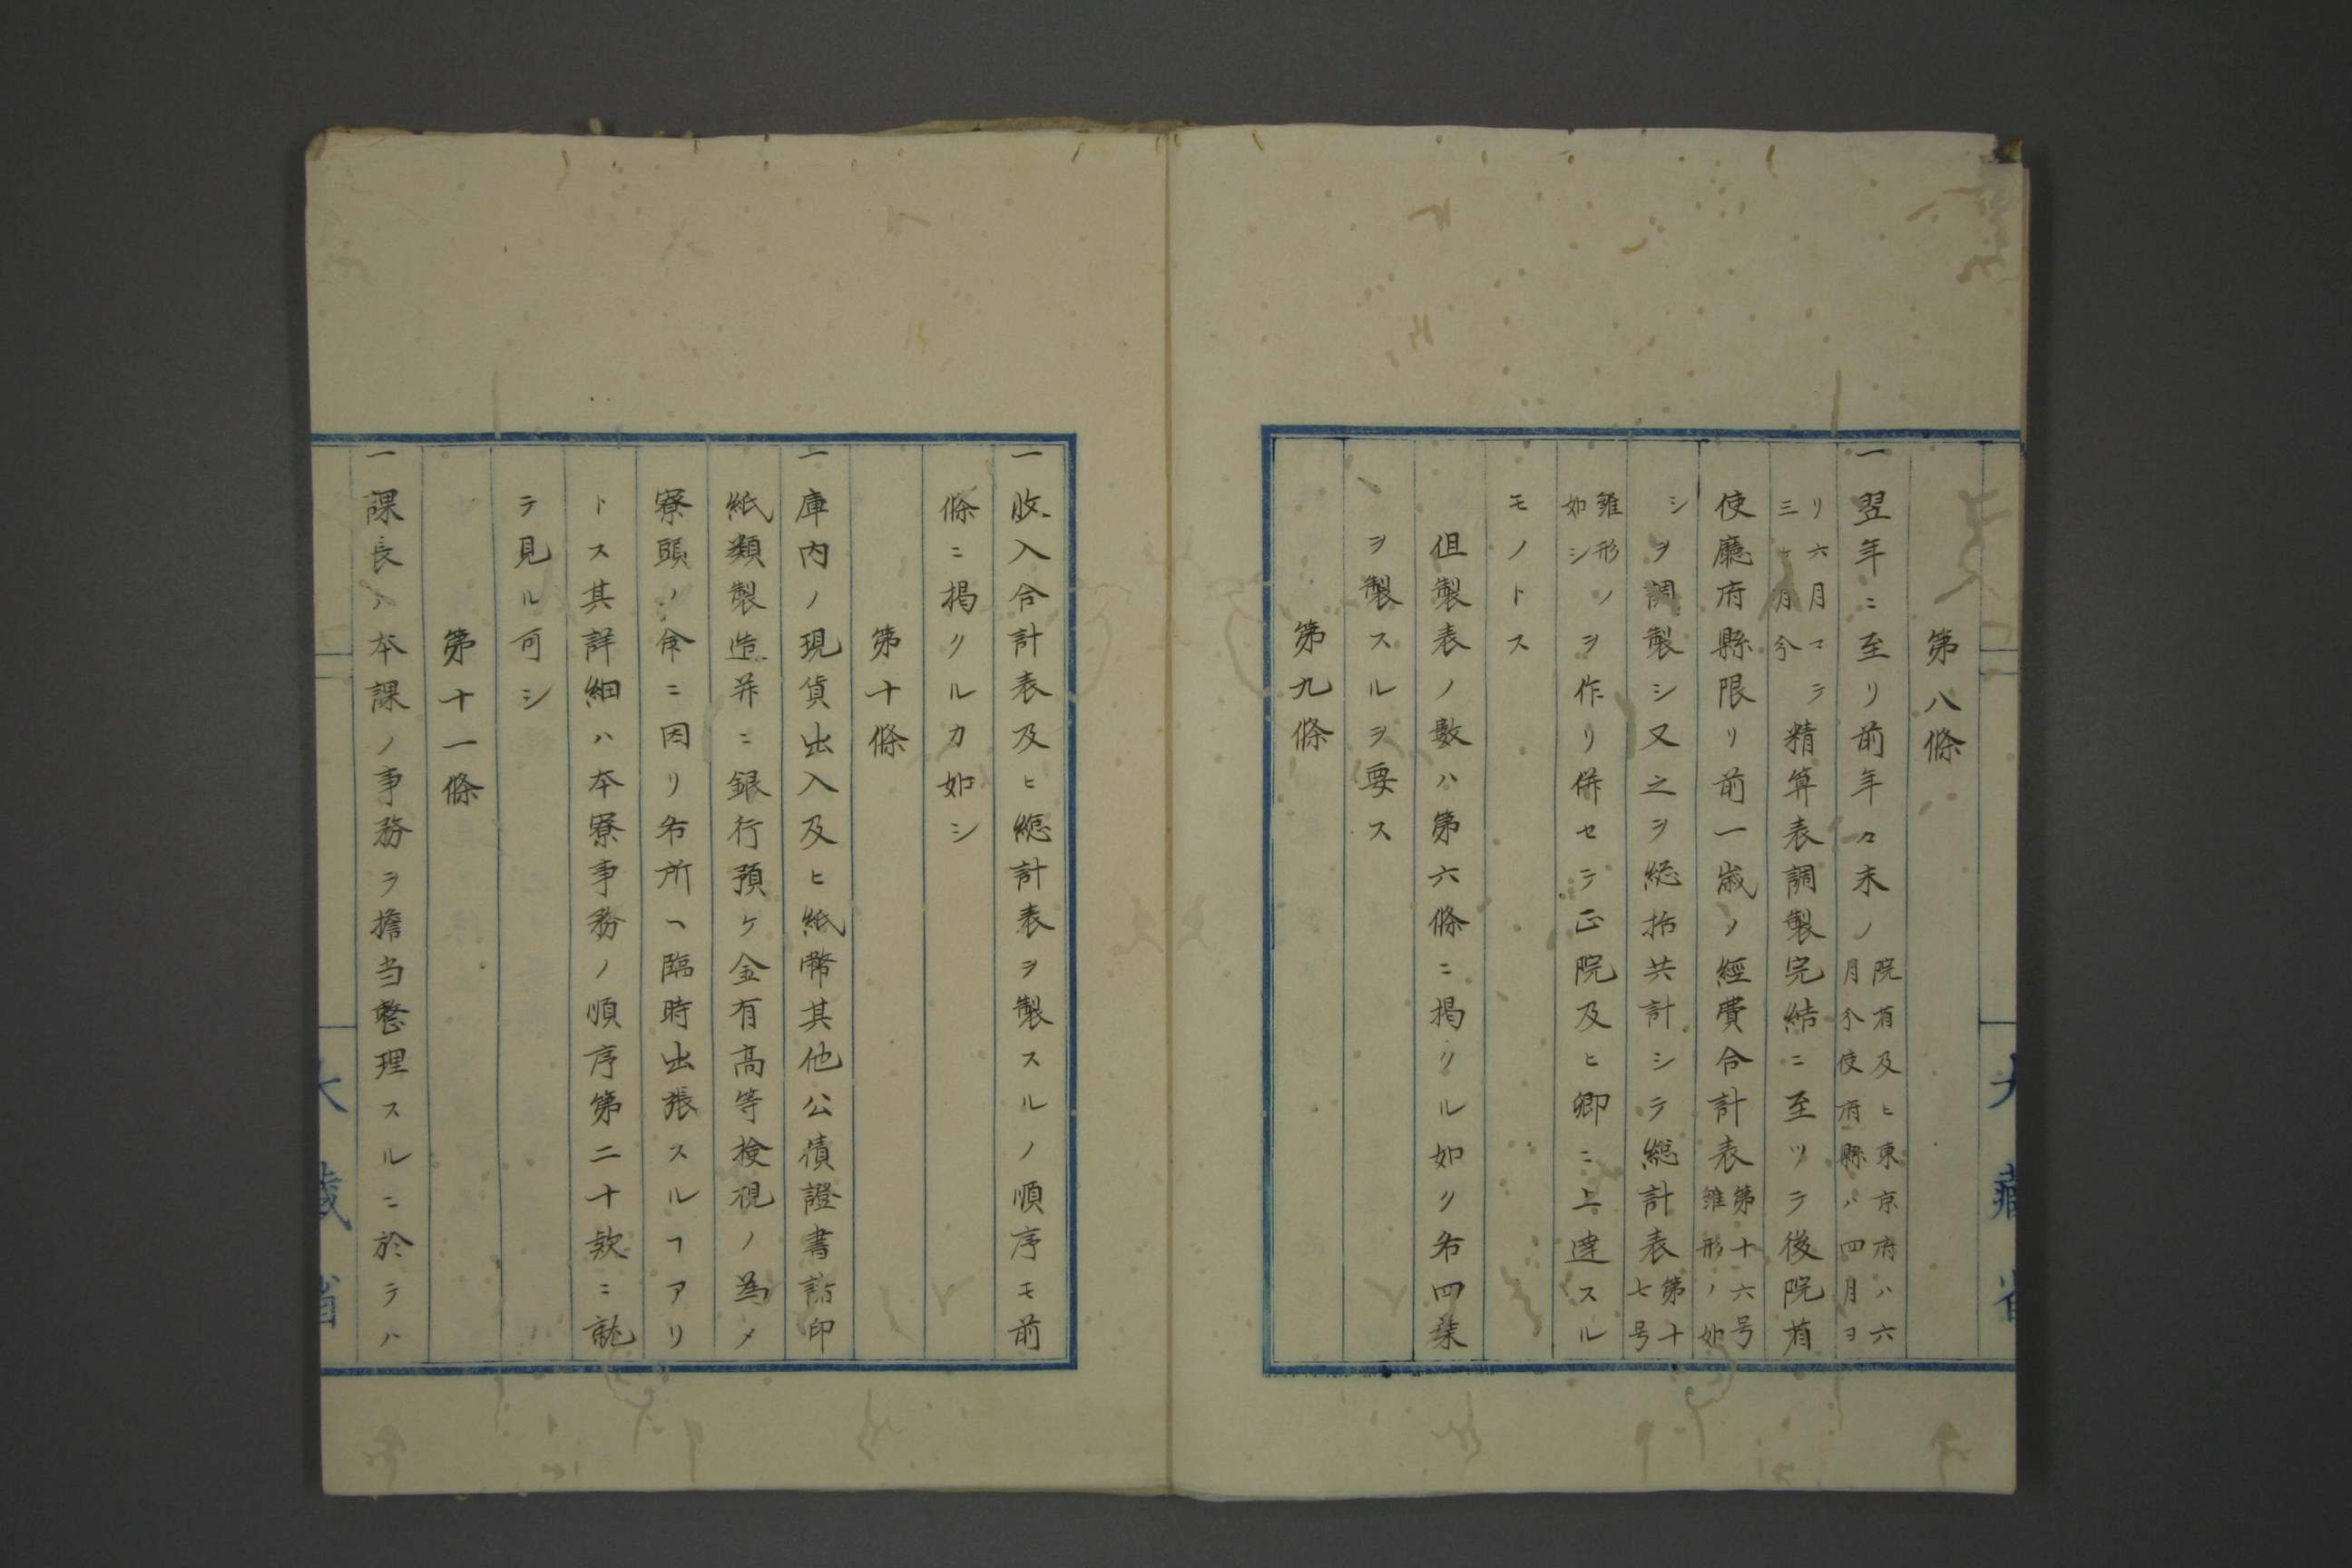 第八條
一翌年ニ至リ前年々末ノ院省及ヒ東京府ハ六
月分使府縣ハ四月ヨ
リ六月マテ
三ヶ月分精算表調製完結ニ至ツテ後院省
使廳府縣限リ前一歳ノ經費合計表第十六号
雛形ノ如
シヲ調製シ又之ヲ総括共計シテ総計表第十
七号
雛形ノ
如シヲ作リ併セテ正院及ヒ卿ニ上達スル
モノトス
但製表ノ數ハ第六條ニ掲クル如ク各四葉
ヲ製スルヲ要ス
第九條
大藏省
一收入合計表及ヒ總計表ヲ製スルノ順序モ前
條ニ掲クルカ如シ
第十條
一庫内ノ現貨出入及ヒ紙幣其他公債證書諸印
紙類製造并ニ銀行預ケ金有高等検視ノ為メ
寮頭ノ命ニ因リ各所ヘ臨時出張スルヿアリ
トス其詳細ハ本寮事務ノ順序第二十款ニ就
テ見ル可シ
第十一條
一課長ハ本課ノ事務ヲ擔当整理スルニ於テハ
大藏省